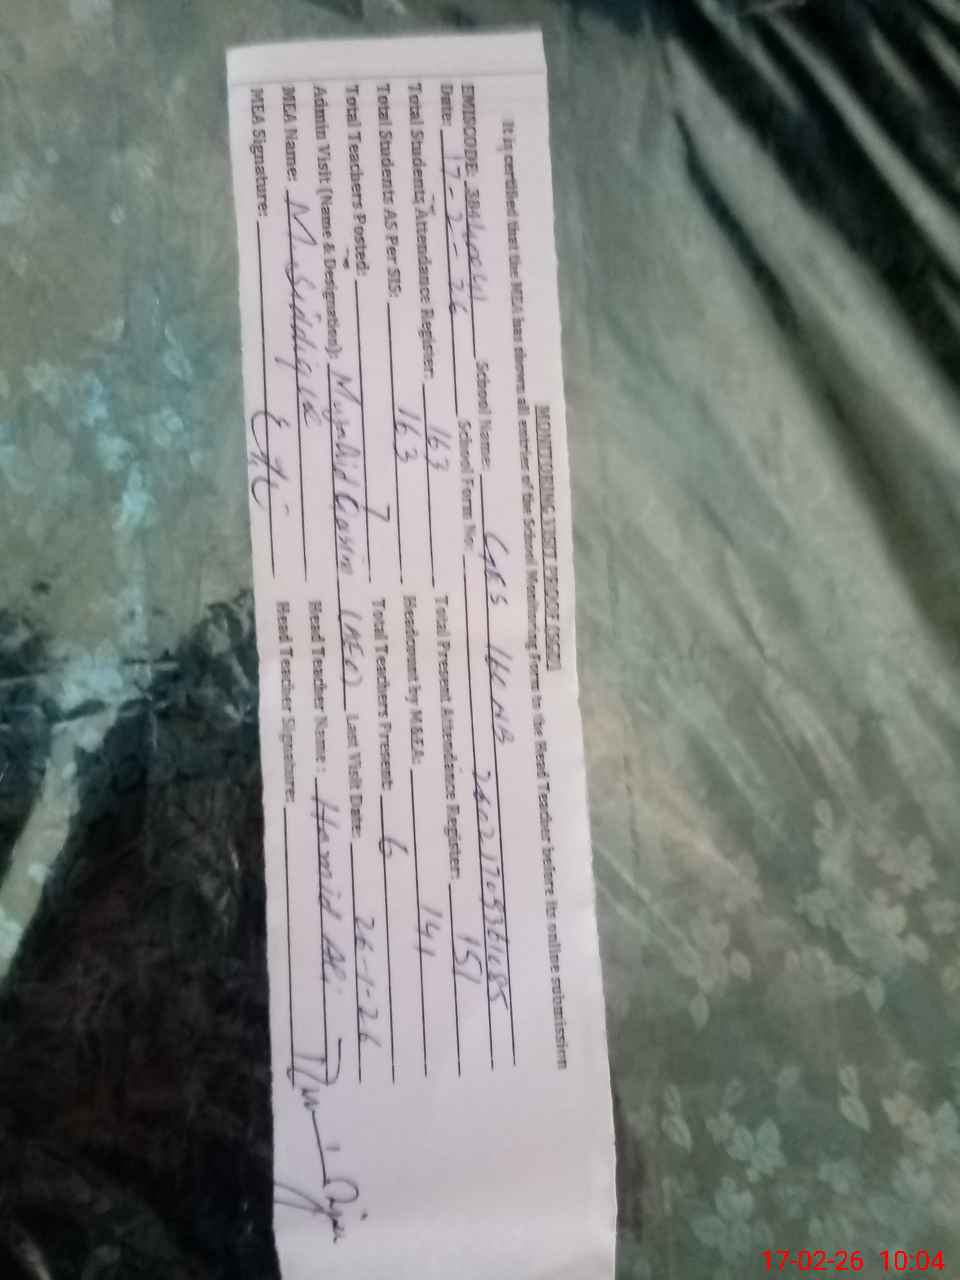 MONITORING VISIT PROOF (SED)
It is certified that the MEA has shown all entries of the School Monitoring Form to the Head Teacher before its online submission
EMISCODE: School Name: GES 164 NB
Date: 17-2-26 School Form No:
Total Students Attendance Register: 163 Total Present Attendance Register: 151
Total Students AS Per SIS: 163 Headcount by M&EA: 141
Total Teachers Posted: 7 Total Teachers Present: 6
Admin Visit (Name & Designation): (AEO) Last Visit Date: 26-1-26
MEA Name: M. Siddique Head Teacher Name: Hamid Ali
MEA Signature: Head Teacher Signature:
17-02-26 10:04